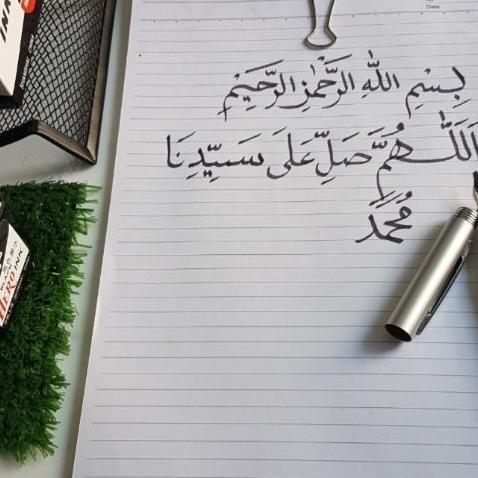 بِسْمِ اللّٰهِ الرَّحْمٰنِ الرَّحِيْمِ
اَللّٰهُمَّ صَلِّ عَلَى سَيِّدِنَا
مُحَمَّد
HERO INK